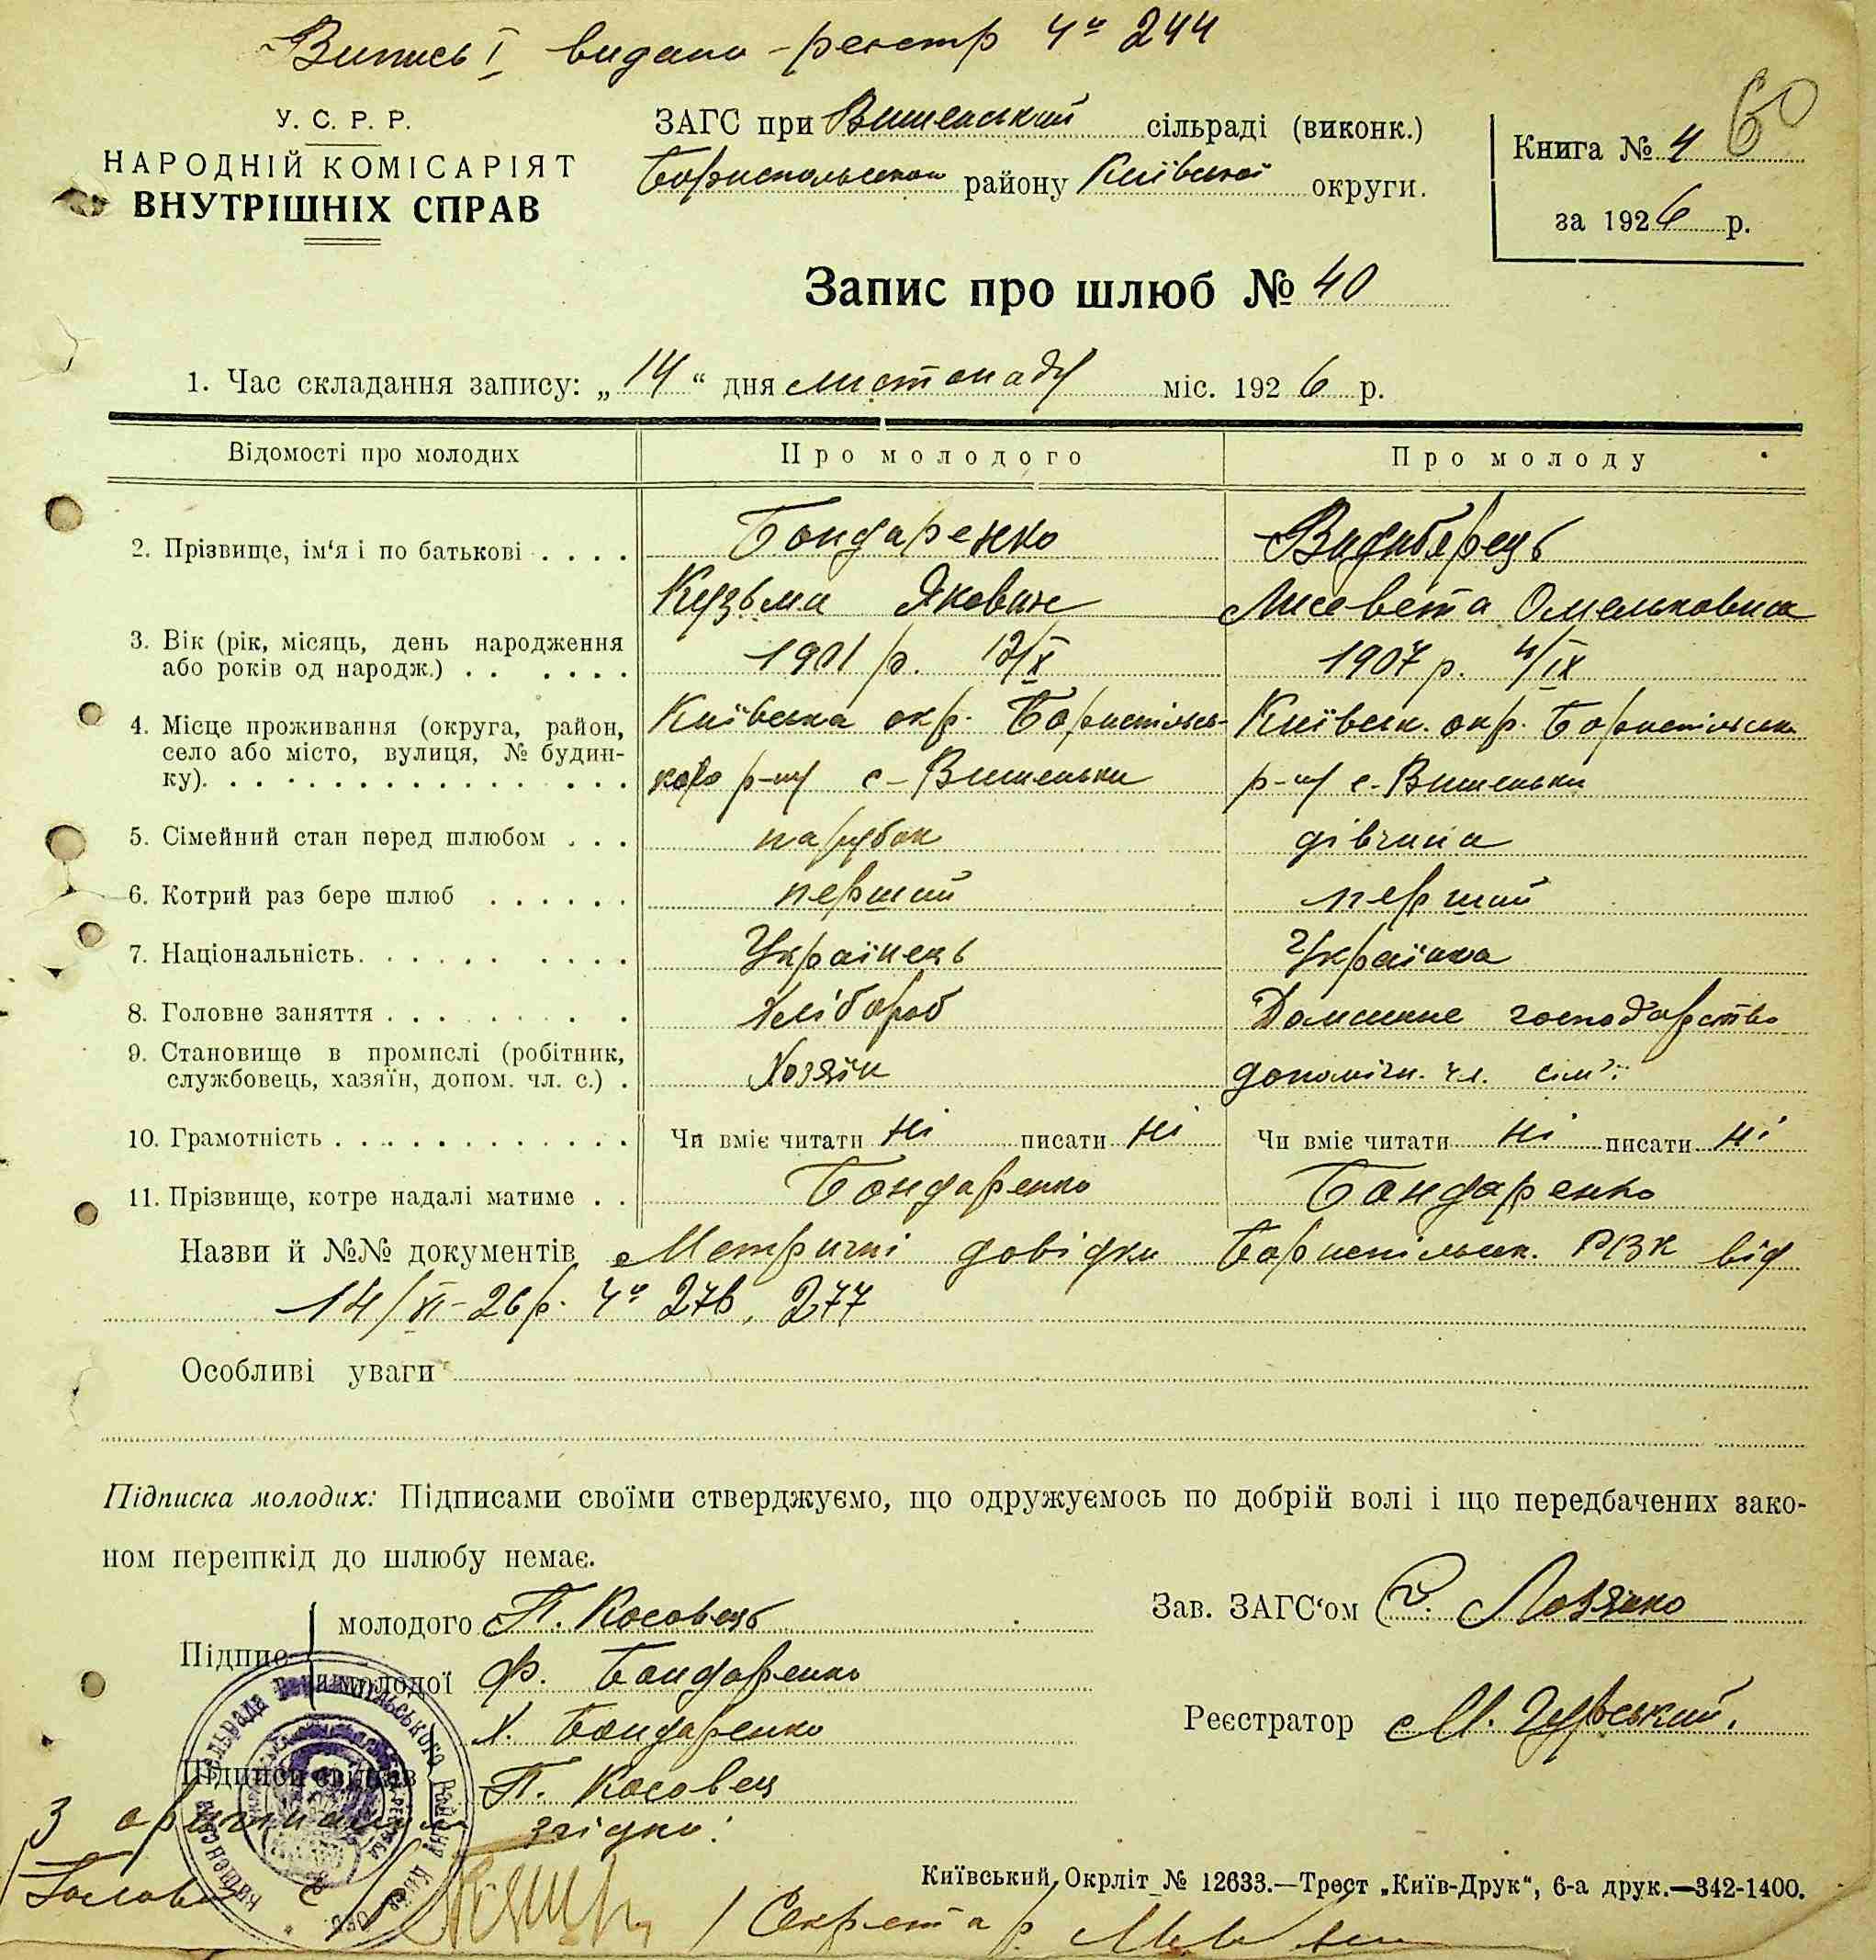 Випись I видано - реєстр Чо 244
У. С. Р. Р.
НАРОДНІЙ КОМІСАРІЯТ
ВНУТРІШНІХ СПРАВ
ЗАГС при Вишенський сільраді (виконк.)
Бориспольского району Київської округи.
Книга № 4
60
за 1926 р.
Запис про шлюб № 40
1. Час складання запису: „14“ дня листопаду міс. 1926 р.
Відомості про молодих
Про молодого
Про молоду
2. Прізвище, ім'я і по батькові . . . .
Бондаренко
Кузьма Якович
Видиборець
Лисавета Омельковна
3. Вік (рік, місяць, день народження
або років од народж.) . . . . . .
1901 р. 12/X
1907 р. 4/IX
4. Місце проживання (округа, район,
село або місто, вулиця, № будин-
ку). . . . . . . . . . . . . . .
Київська окр. Бориспільсь-
кого р-ну с-Вишеньки
Київськ. окр. Бориспільськ.
р-ну с-Вишеньки
5. Сімейний стан перед шлюбом . . .
парубок
дівчина
6. Котрий раз бере шлюб . . . . . .
перший
перший
7. Національність. . . . . . . . . .
Українець
Українка
8. Головне заняття . . . . . . . .
Хлібороб
Домашнє господарство
9. Становище в промислі (робітник,
службовець, хазяїн, допом. чл. с.) .
Хозяїн
допоміжн. чл. сім'ї
10. Грамотність . . . . . . . . . . . . .
Чи вміє читати ні писати ні
Чи вміє читати ні писати ні
11. Прізвище, котре надалі матиме . .
Бондаренко
Бондаренко
Назви й №№ документів Метричні довідки Бориспільськ. РВК від
14/XI-26 р. Чо 276, 277
Особливі уваги
Підписка молодих: Підписами своїми стверджуємо, що одружуємось по добрій волі і що передбачених зако-
ном перешкід до шлюбу немає.
Підпис
молодого П. Косовець
молодої Ф. Бондаренко
Х. Бондаренко
Підписи свідків
П. Косовец
Зав. ЗАГС'ом Лозянко
Реєстратор М. Гурський.
З оригіналом згідно:
Голова
Секретар
Київський Окрліт № 12633.—Трест „Київ-Друк“, 6-а друк.—342-1400.